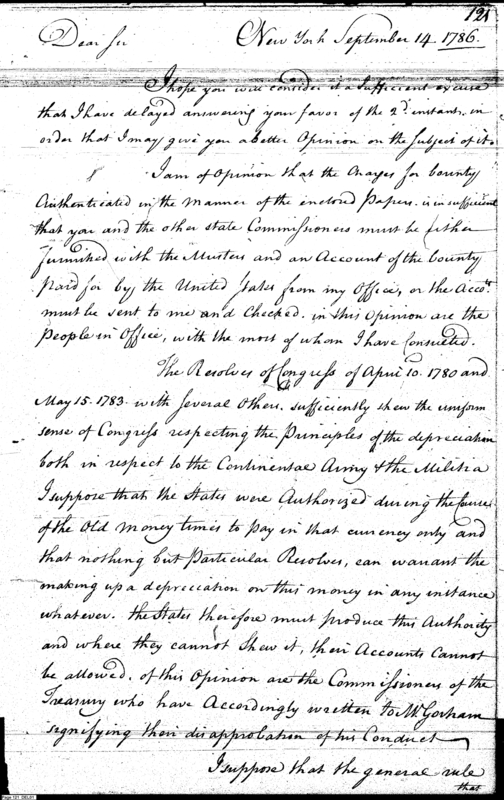 121
Dear Sir New York September 14 1786.
I hope you will consider it a Sufficient excuse
that I have delayed answering your favor of the 2d instant, in
order that I may give you a better Opinion on the subject of it.
I am of Opinion that the Charges for bounty
Authenticated in the manner of the enclosed Papers. is insufficient
that you and the other state Commissioners must be either
furnished with the Musters and an Account of the bounty
paid for by the United States from my Office, or the Accots
must be sent to me and Checked. in this Opinion are the
People in Office, with the most of whom I have Consulted.
The Resolves of Congress of April 10. 1780 and
May 15. 1783. with several Others. sufficiently shew the uniform
sense of Congress respecting the Principles of the depreciation
both in respect to the Continental Army & the Militia
I suppose that the States were Authorized during the Course
of the Old Money times to pay in that currency only and
that nothing but Particular Resolves, can warrant the
making up a depreciation on this money in any instance
whatever. the States therefore must produce this Authority
and where they cannot shew it, their Accounts cannot
be allowed. of this Opinion are the Commissioners of the
Treasury who have Accordingly written to Mr Gorham
signifying their disapprobation of his Conduct
I suppose that the general rule
that